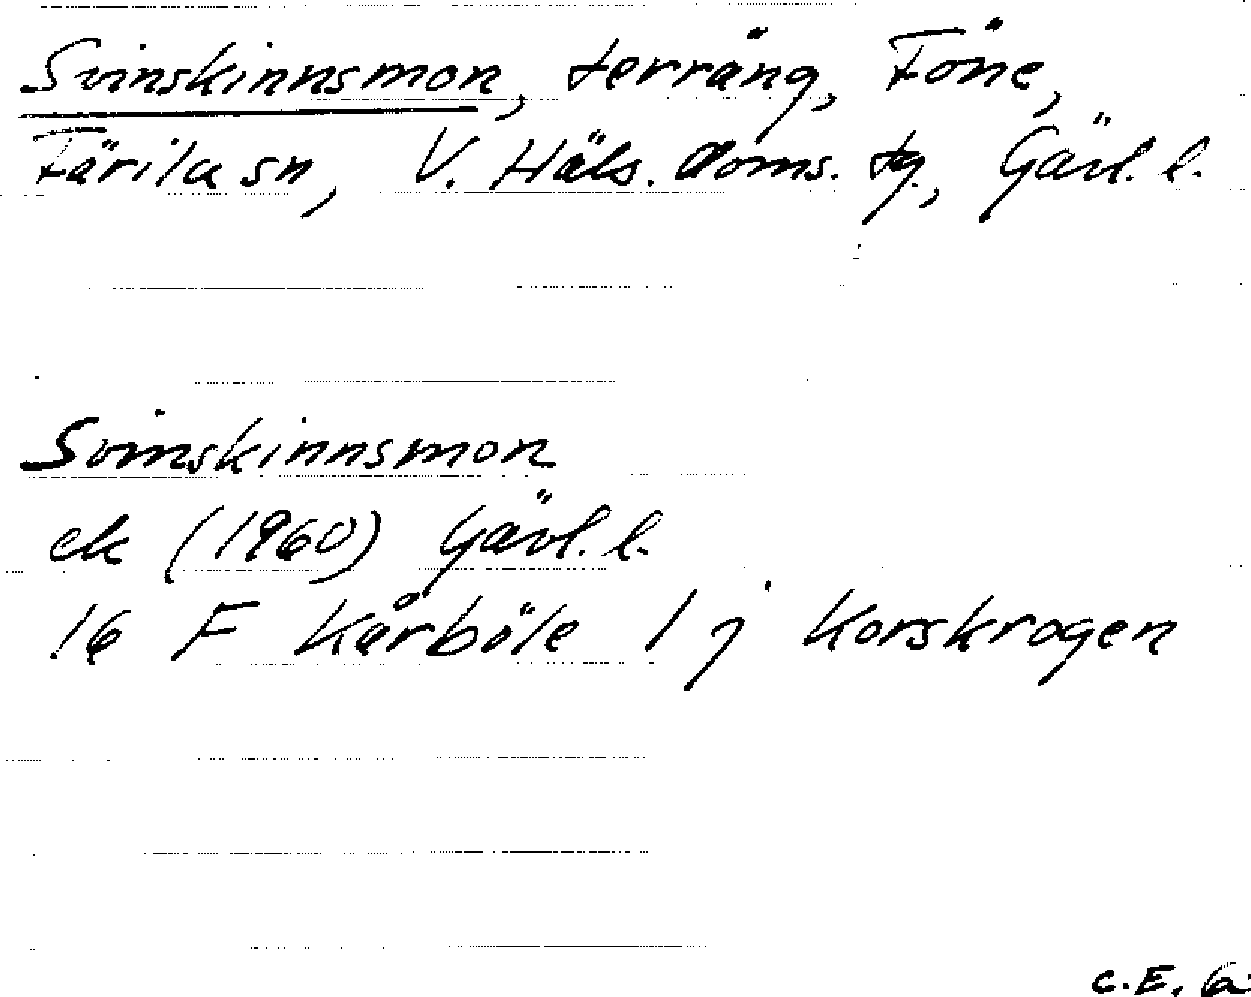 Svinskinnsmon, terräng, Föne,
Färila sn, V. Häls. doms. tg., Gävl. l.
Svinskinnsmon
ek (1960) Gävl. l.
16 F Kårböle 1 j Korskrogen
C.E.